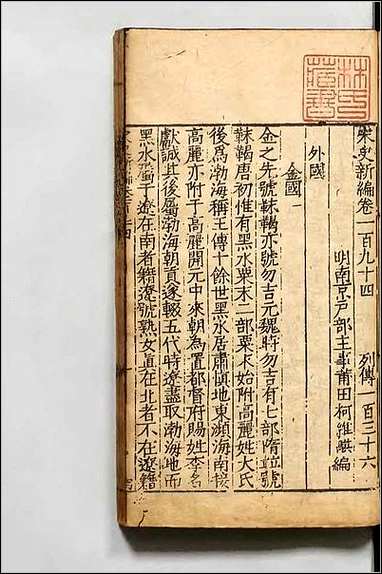 宋史新編卷一百九十四 列傳一百三十六
明南京戶部主事莆田柯維騏編
外國
金國一
金之先號靺鞨亦號勿吉元魏時勿吉有七部隋竝號
靺鞨唐初惟有黑水粟末二部粟末始附高麗姓大氏
後爲渤海稱王傳十餘世黑水居肅慎地東瀕海南接
高麗亦附于高麗開元中來朝爲置都督府賜姓李名
獻誠其後屬渤海朝貢遂輟五代時遼盡取渤海地而
黑水屬于遼在南者籍遼號熟女眞在北者不在遼籍